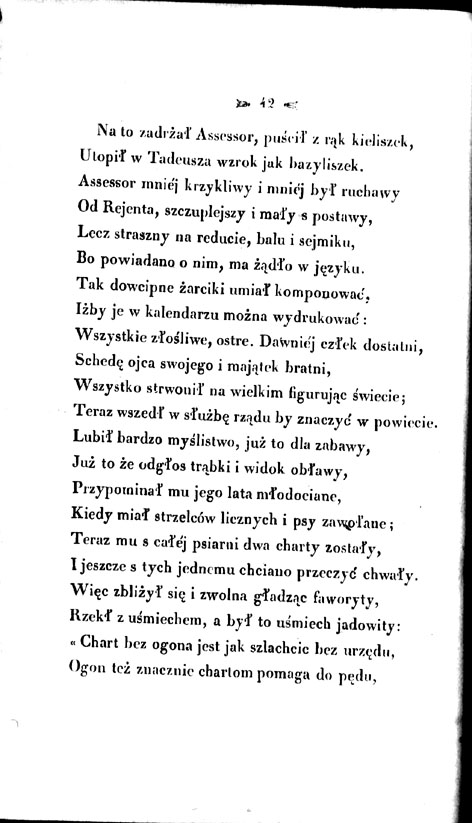 42
Na to zadrżał Assessor, puścił z rąk kieliszek,
Utopił w Tadeusza wzrok jak bazyliszek.
Assessor mniéj krzykliwy i mniéj był ruchawy
Od Rejenta, szczuplejszy i mały s postawy,
Lecz straszny na reducie, balu i sejmiku,
Bo powiadano o nim, ma żądło w języku.
Tak dowcipne żarciki umiał komponować,
Iżby je w kalendarzu można wydrukować :
Wszystkie złośliwe, ostre. Dawniéj człek dostatni,
Schedę ojca swojego i majątek bratni,
Wszystko strwonił na wielkim figurując świecie;
Teraz wszedł w służbę rządu by znaczyć w powiecie.
Lubił bardzo myślistwo, już to dla zabawy,
Już to że odgłos trąbki i widok obławy,
Przypominał mu jego lata młodociane,
Kiedy miał strzelców licznych i psy zawołane;
Teraz mu s całéj psiarni dwa charty zostały,
I jeszcze s tych jednemu chciano przeczyć chwały.
Więc zbliżył się i zwolna gładząc faworyty,
Rzekł z uśmiechem, a był to uśmiech jadowity:
« Chart bez ogona jest jak szlachcic bez urzędu,
Ogon też znacznie chartom pomaga do pędu,